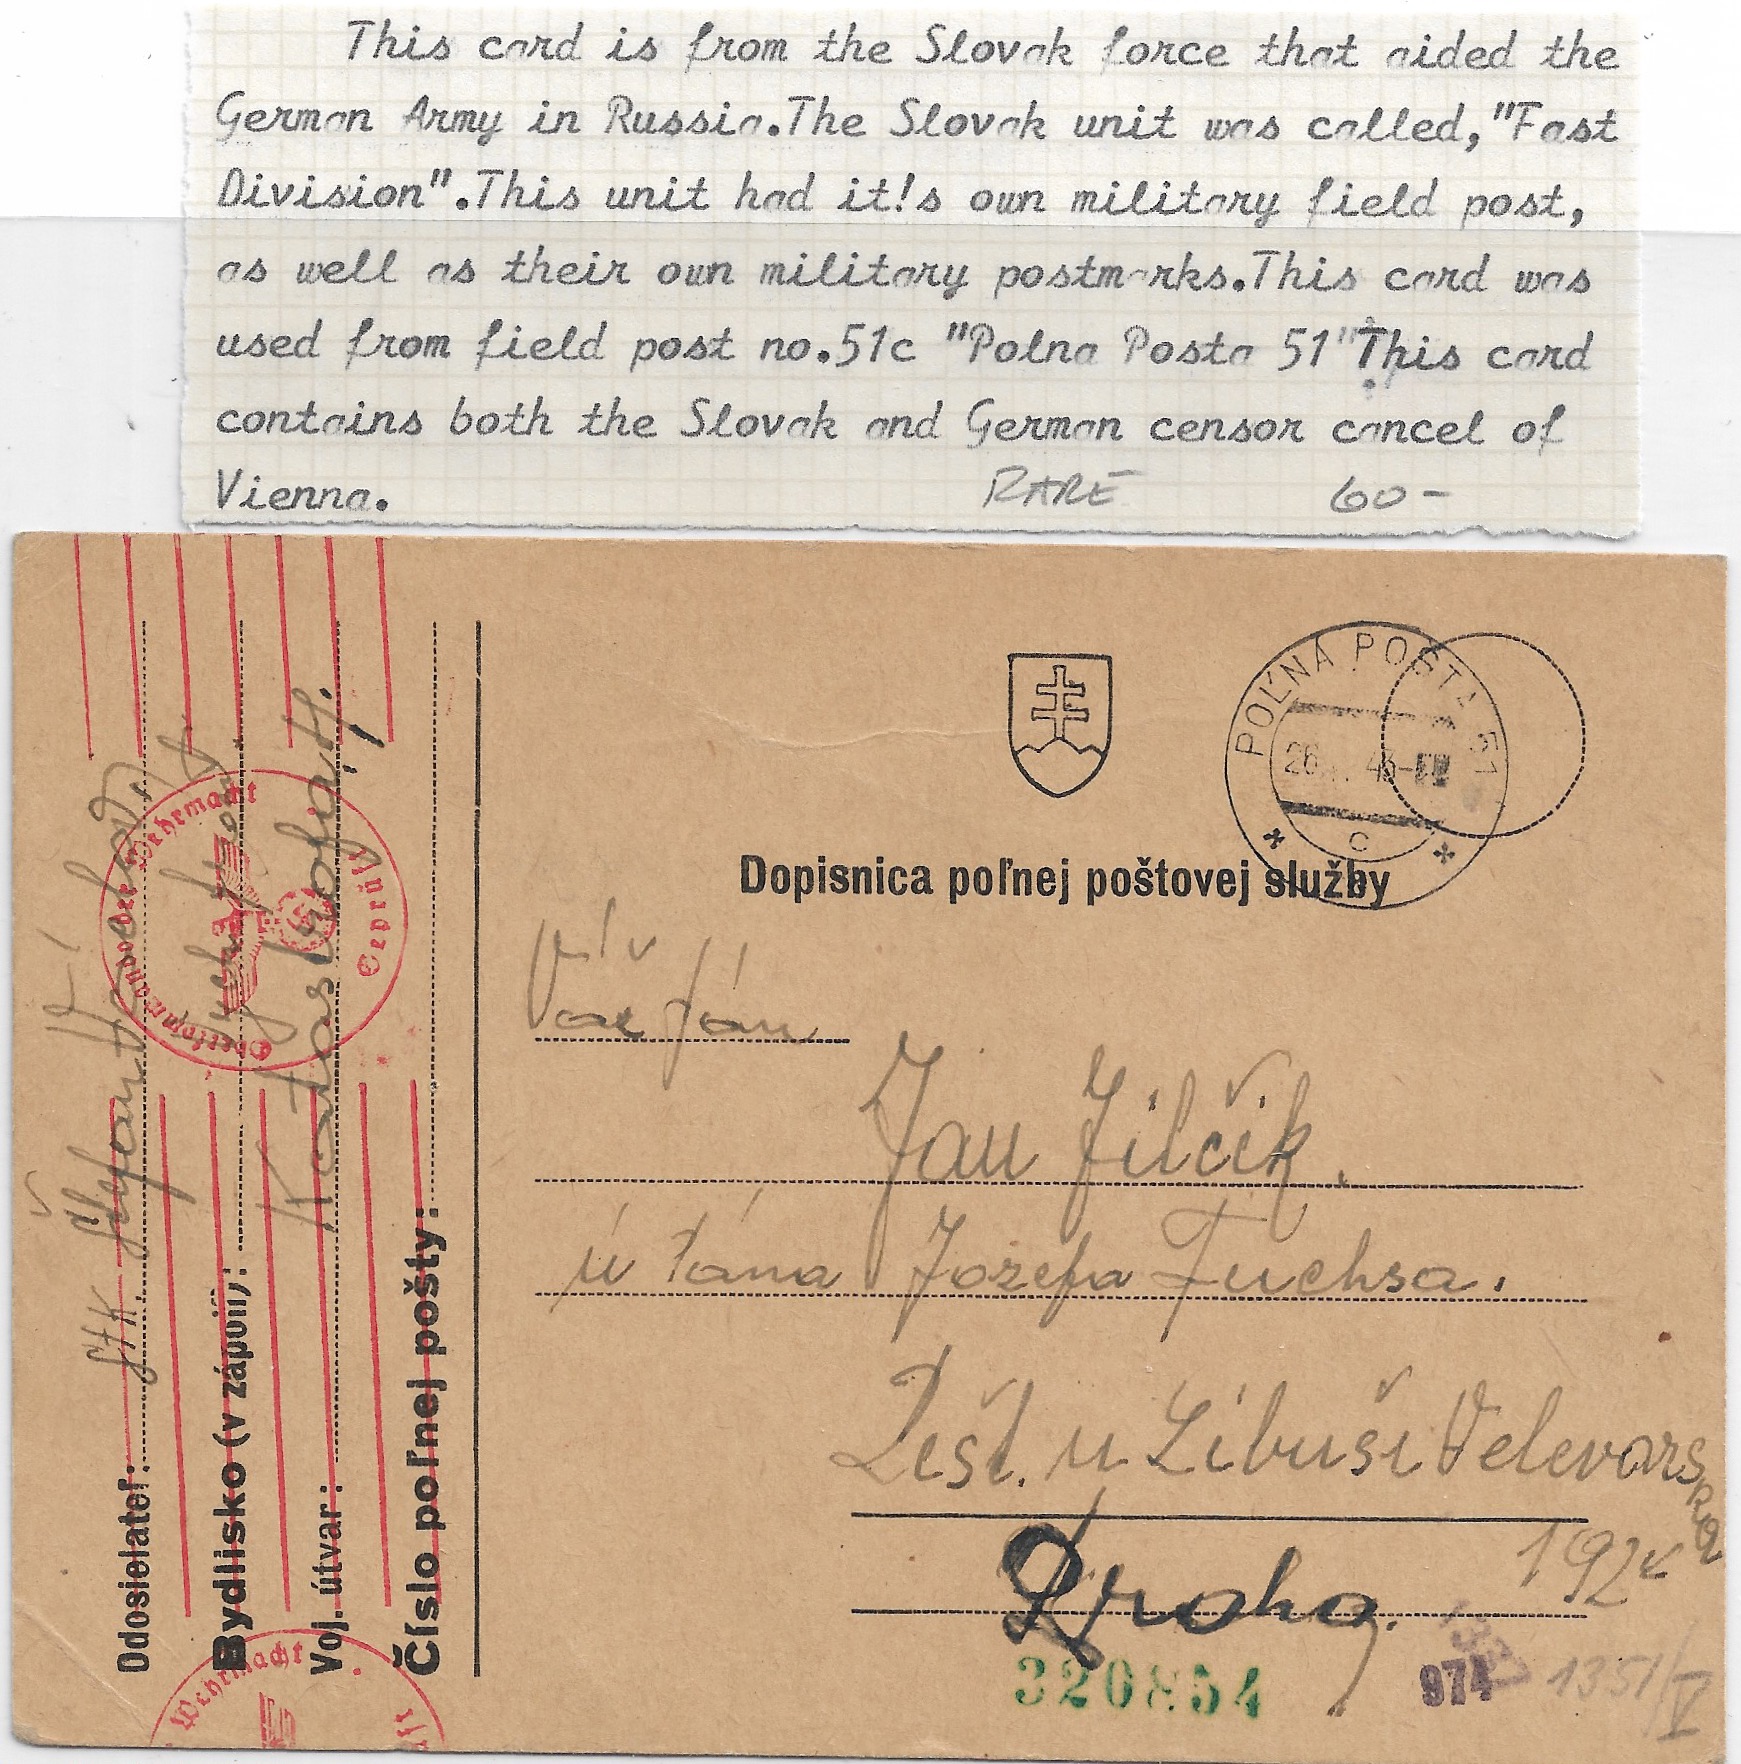 This card is from the Slovak force that aided the
German Army in Russia.The Slovak unit was called,"Fast
Division".This unit had it!s own military field post,
as well as their own military postmarks.This card was
used from field post no.51c "Polna Posta 51"This card
contains both the Slovak and German censor cancel of
Vienna.
RARE 60-
POĽNÁ POŠTA 51
26 43
c
Dopisnica poľnej poštovej služby
Jan Jilčik.
Jozefa Fuchsa.
u Libuši Velevarska
192
Praha.
320854
974
1351/V
Odosielateľ:
Štefan
Bydlisko (v zápolí):
Voj. útvar:
Číslo poľnej pošty:
Oberkommando der Wehrmacht
Geprüft
Wehrmacht